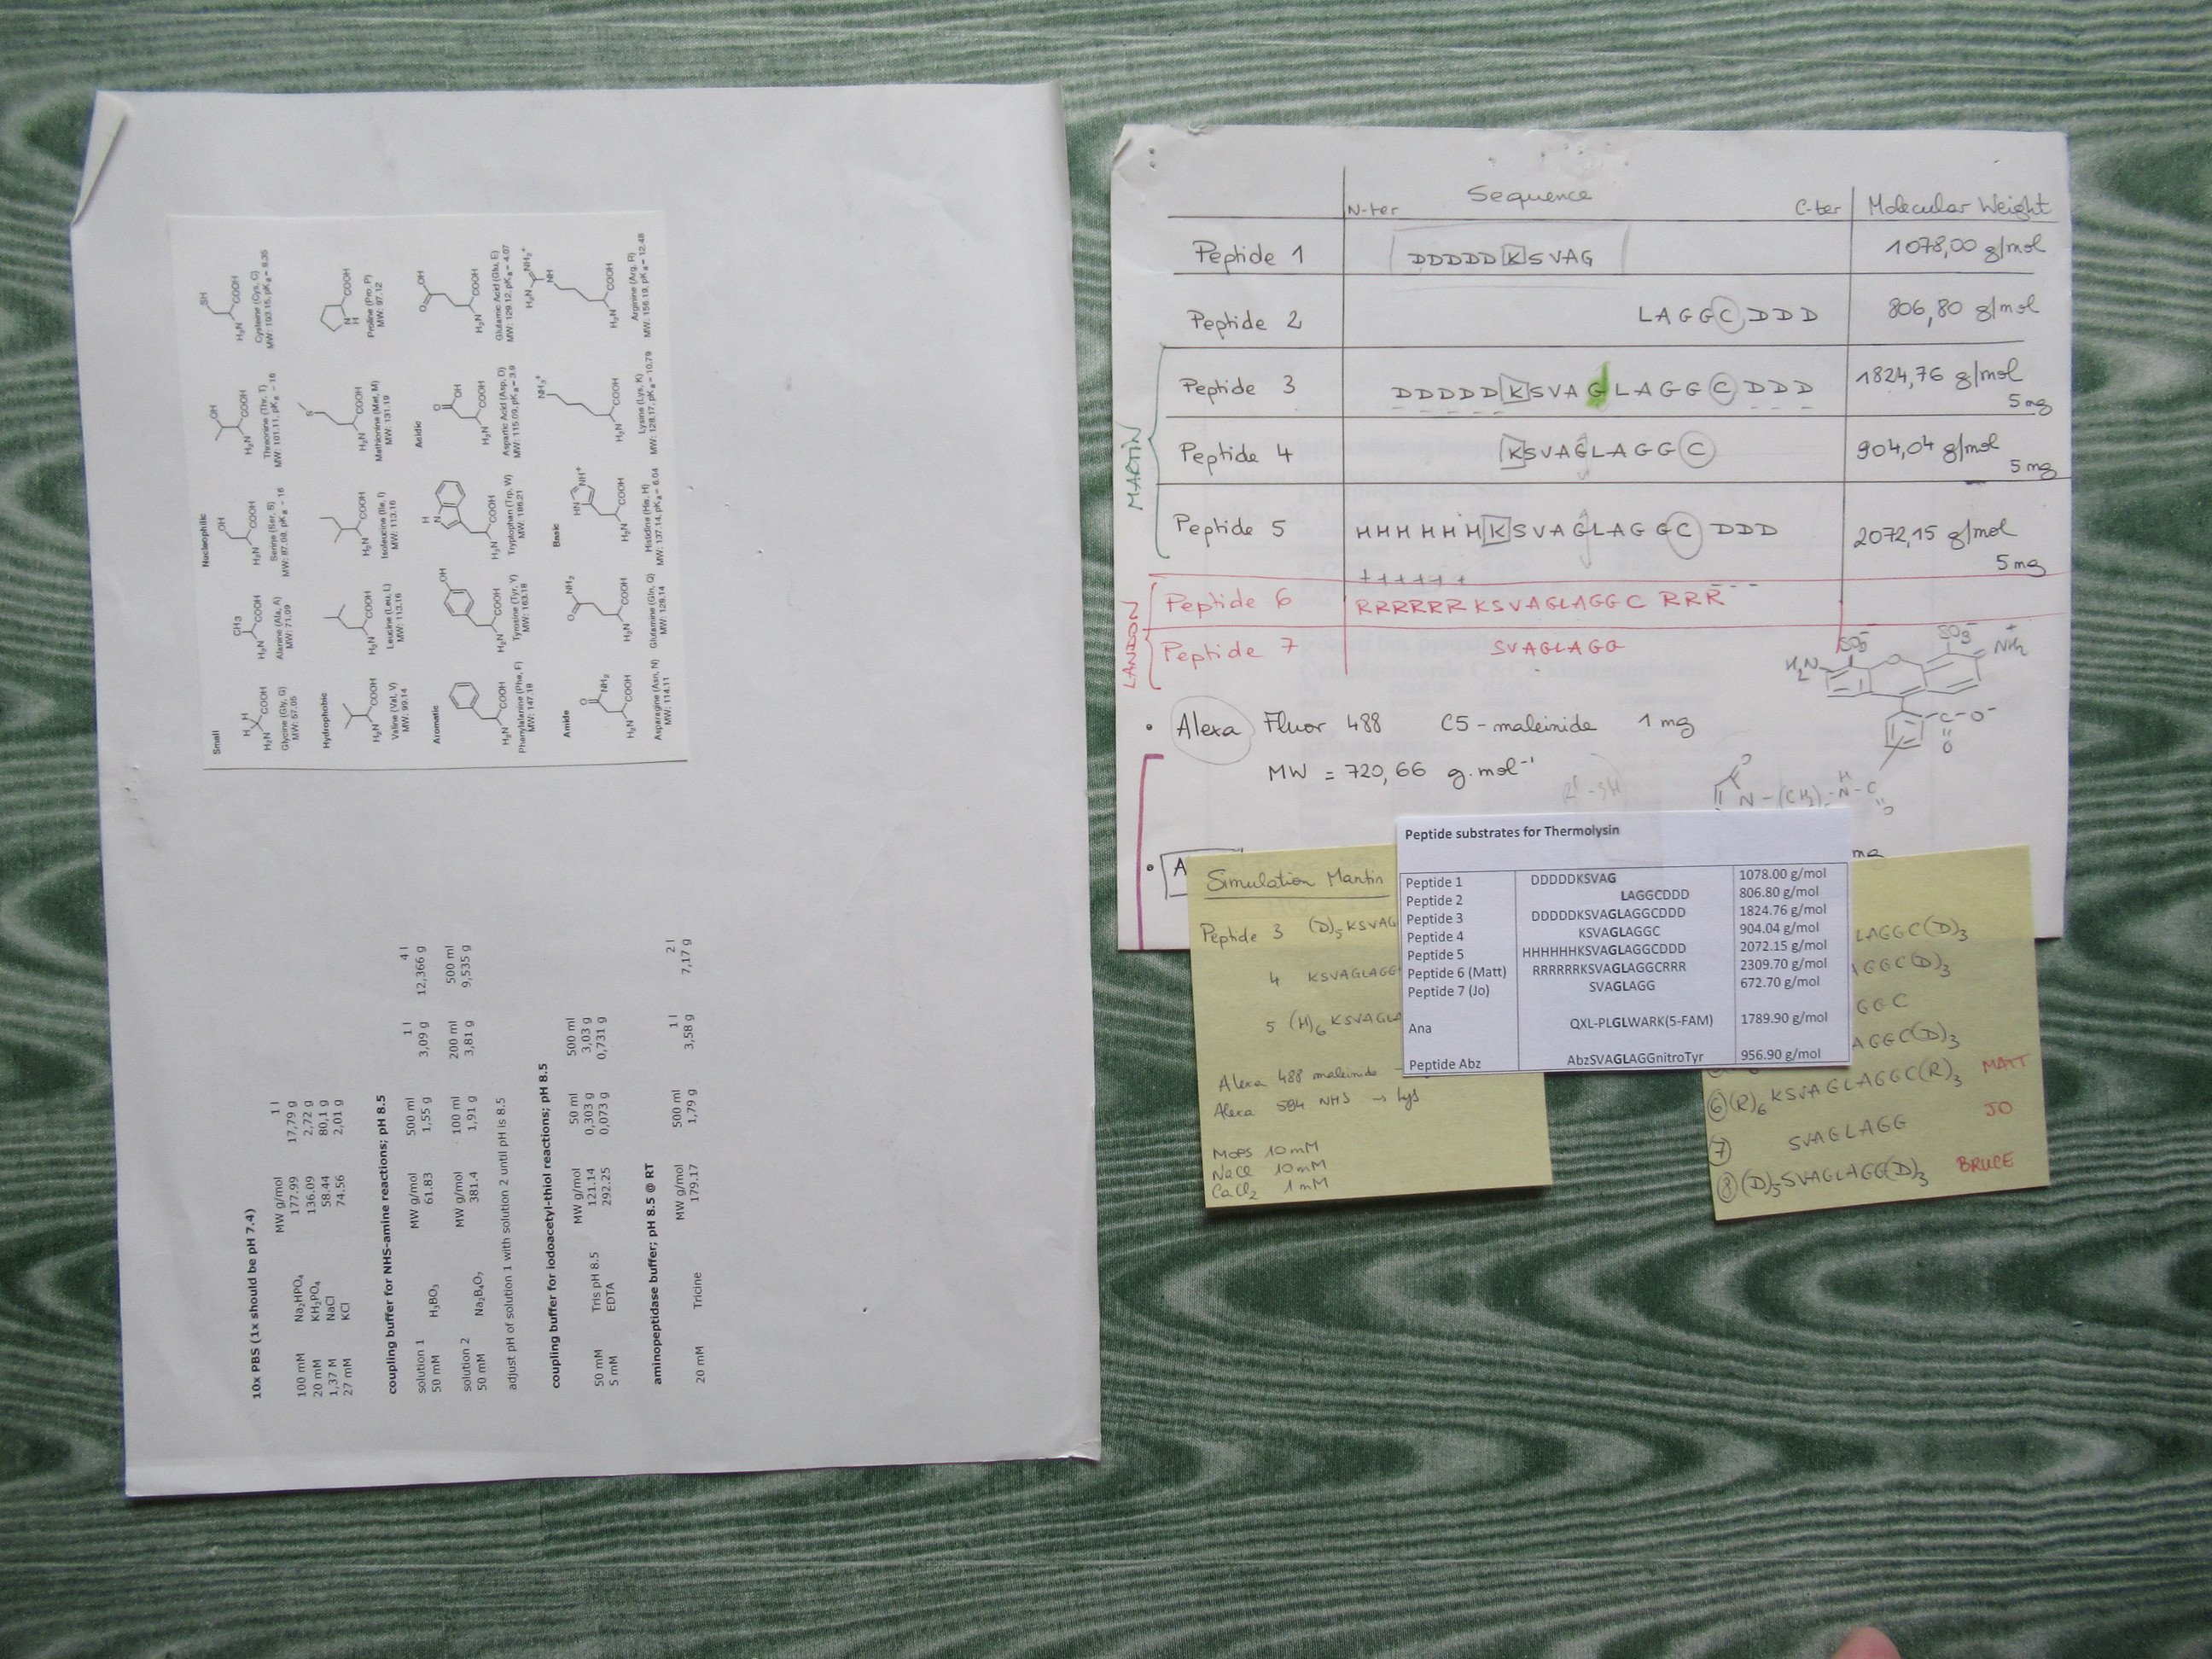 Small
Nucleophilic
H
H
H₂N
COOH
Glycine (Gly, G)
MW: 57.05
CH3
H₂N
COOH
Alanine (Ala, A)
MW: 71.09
OH
H₂N
COOH
Serine (Ser, S)
MW: 87.08, pKa ~ 16
OH
H₂N
COOH
Threonine (Thr, T)
MW: 101.11, pKa ~ 16
SH
H₂N
COOH
Cysteine (Cys, C)
MW: 103.15, pKa = 8.35
Hydrophobic
H₂N
COOH
Valine (Val, V)
MW: 99.14
H₂N
COOH
Leucine (Leu, L)
MW: 113.16
H₂N
COOH
Isoleucine (Ile, I)
MW: 113.16
S
H₂N
COOH
Methionine (Met, M)
MW: 131.19
N
H
COOH
Proline (Pro, P)
MW: 97.12
Aromatic
Acidic
H₂N
COOH
Phenylalanine (Phe, F)
MW: 147.18
OH
H₂N
COOH
Tyrosine (Tyr, Y)
MW: 163.18
H
N
H₂N
COOH
Tryptophan (Trp, W)
MW: 186.21
O
OH
H₂N
COOH
Aspartic Acid (Asp, D)
MW: 115.09, pKa = 3.9
O
OH
H₂N
COOH
Glutamic Acid (Glu, E)
MW: 129.12, pKa = 4.07
Amide
Basic
O
NH₂
H₂N
COOH
Asparagine (Asn, N)
MW: 114.11
O
NH₂
H₂N
COOH
Glutamine (Gln, Q)
MW: 128.14
HN
NH⁺
H₂N
COOH
Histidine (His, H)
MW: 137.14, pKa = 6.04
NH₃⁺
H₂N
COOH
Lysine (Lys, K)
MW: 128.17, pKa = 10.79
H₂N
NH₂⁺
NH
H₂N
COOH
Arginine (Arg, R)
MW: 156.19, pKa = 12.48
10x PBS (1x should be pH 7.4)
MW g/mol 1 l
100 mM Na₂HPO₄ 177.99 17,79 g
20 mM KH₂PO₄ 136.09 2,72 g
1,37 M NaCl 58.44 80,1 g
27 mM KCl 74.56 2,01 g
coupling buffer for NHS-amine reactions; pH 8.5
solution 1 MW g/mol 500 ml 1 l 4 l
50 mM H₃BO₃ 61.83 1,55 g 3,09 g 12,366 g
solution 2 MW g/mol 100 ml 200 ml 500 ml
50 mM Na₂B₄O₇ 381.4 1,91 g 3,81 g 9,535 g
adjust pH of solution 1 with solution 2 until pH is 8.5
coupling buffer for iodoacetyl-thiol reactions; pH 8.5
MW g/mol 50 ml 500 ml
50 mM Tris pH 8.5 121.14 0,303 g 3,03 g
5 mM EDTA 292.25 0,073 g 0,731 g
aminopeptidase buffer; pH 8.5 @ RT
MW g/mol 500 ml 1 l 2 l
20 mM Tricine 179.17 1,79 g 3,58 g 7,17 g
N-ter Sequence C-ter Molecular Weight
Peptide 1 DDDDDKSVAG 1078,00 g/mol
Peptide 2 LAGGCDDD 806,80 g/mol
Peptide 3 DDDDDKSVAGLAGGCDDD 1824,76 g/mol
5 mg
Peptide 4 KSVAGLAGGC 904,04 g/mol
5 mg
Peptide 5 HHHHHHKSVAGLAGGCDDD 2072,15 g/mol
5 mg
+ + + + + + - - -
Peptide 6 RRRRRRKSVAGLAGGC RRR
Peptide 7 SVAGLAGG
MARTIN
LANDON
• Alexa Fluor 488 C5-maleinide 1 mg
MW = 720,66 g.mol⁻¹
R'-SH
H₂N
SO₃⁻
O
SO₃⁻
NH₂⁺
C-O⁻
O
O
N-(CH₂)₅-N-C
H
O
• A
mg
Simulation Martin
Peptide 3 (D)₅KSVAG
4 KSVAGLAGG
5 (H)₆KSVAGLA
Alexa 488 maleinide
Alexa 594 NHS → Lys
MOPS 10mM
NaCl 10mM
CaCl₂ 1mM
Peptide substrates for Thermolysin
Peptide 1 DDDDDKSVAG 1078.00 g/mol
Peptide 2 LAGGCDDD 806.80 g/mol
Peptide 3 DDDDDKSVAGLAGGCDDD 1824.76 g/mol
Peptide 4 KSVAGLAGGC 904.04 g/mol
Peptide 5 HHHHHHKSVAGLAGGCDDD 2072.15 g/mol
Peptide 6 (Matt) RRRRRRKSVAGLAGGCRRR 2309.70 g/mol
Peptide 7 (Jo) SVAGLAGG 672.70 g/mol
Ana QXL-PLGLWARK(5-FAM) 1789.90 g/mol
Peptide Abz AbzSVAGLAGGnitroTyr 956.90 g/mol
LAGGC(D)₃
AGGC(D)₃
GGC
AGGC(D)₃
⑥ (R)₆KSVAGLAGGC(R)₃ MATT
⑦ SVAGLAGG JO
⑧ (D)₅SVAGLAGG(D)₃ BRUCE